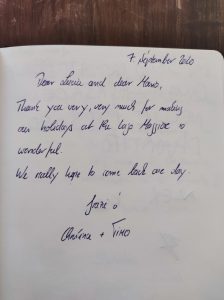 7 September 2020
Dear Lucia and dear Mario,
Thank you very, very much for making
our holidays at the Lago Maggiore so
wonderful.
We really hope to come back one day.
+ TIMO